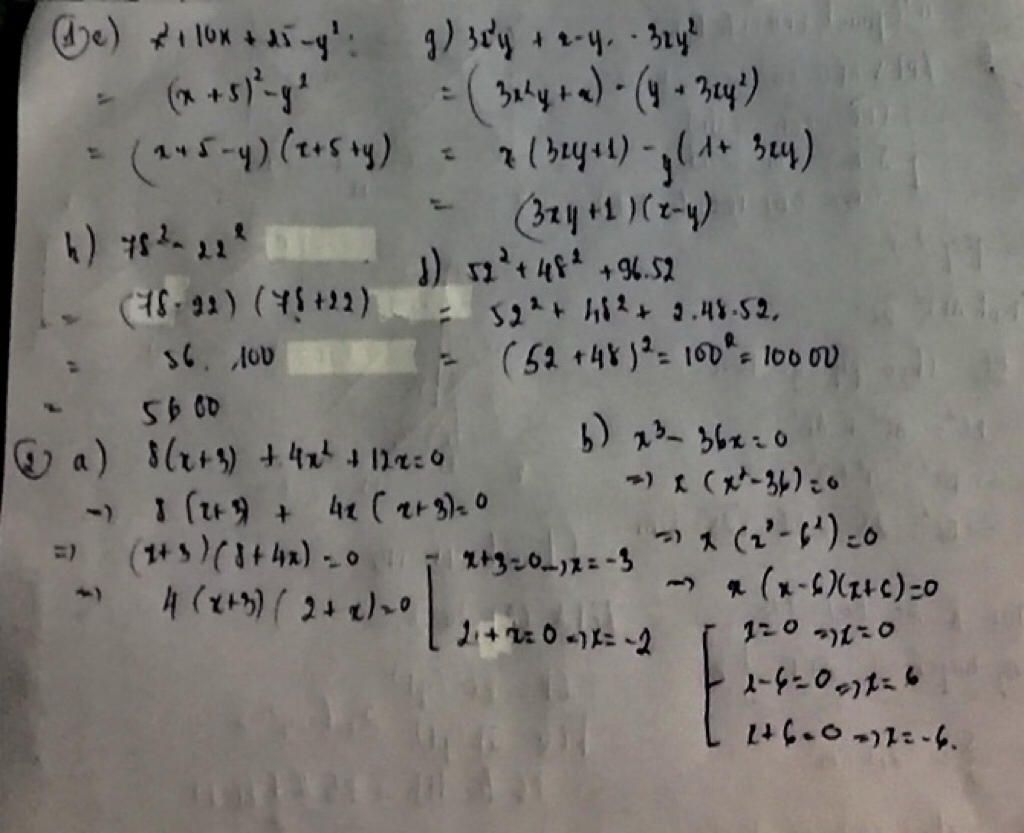 ① e) x² + 10x + 25 - y²:
= (x + 5)² - y²
= (x + 5 - y) (x + 5 + y)
g) 3x²y + x - y - 3xy²
= (3x²y + x) - (y + 3xy²)
= x (3xy + 1) - y (1 + 3xy)
= (3xy + 1) (x - y)
h) 78² - 22²
= (78 - 22) (78 + 22)
= 56 . 100
= 5600
) 52² + 48² + 96.52
= 52² + 48² + 2.48.52.
= (52 + 48)² = 100² = 10000
② a) 8(x+3) + 4x² + 12x = 0
=> 8 (x+3) + 4x (x+3) = 0
=> (x+3) (8 + 4x) = 0
=> 4 (x+3) (2 + x) = 0
x + 3 = 0 => x = -3
2 + x = 0 => x = -2
b) x³ - 36x = 0
=> x (x² - 36) = 0
=> x (x² - 6²) = 0
=> x (x - 6)(x + 6) = 0
x = 0 => x = 0
x - 6 = 0 => x = 6
x + 6 = 0 => x = -6.